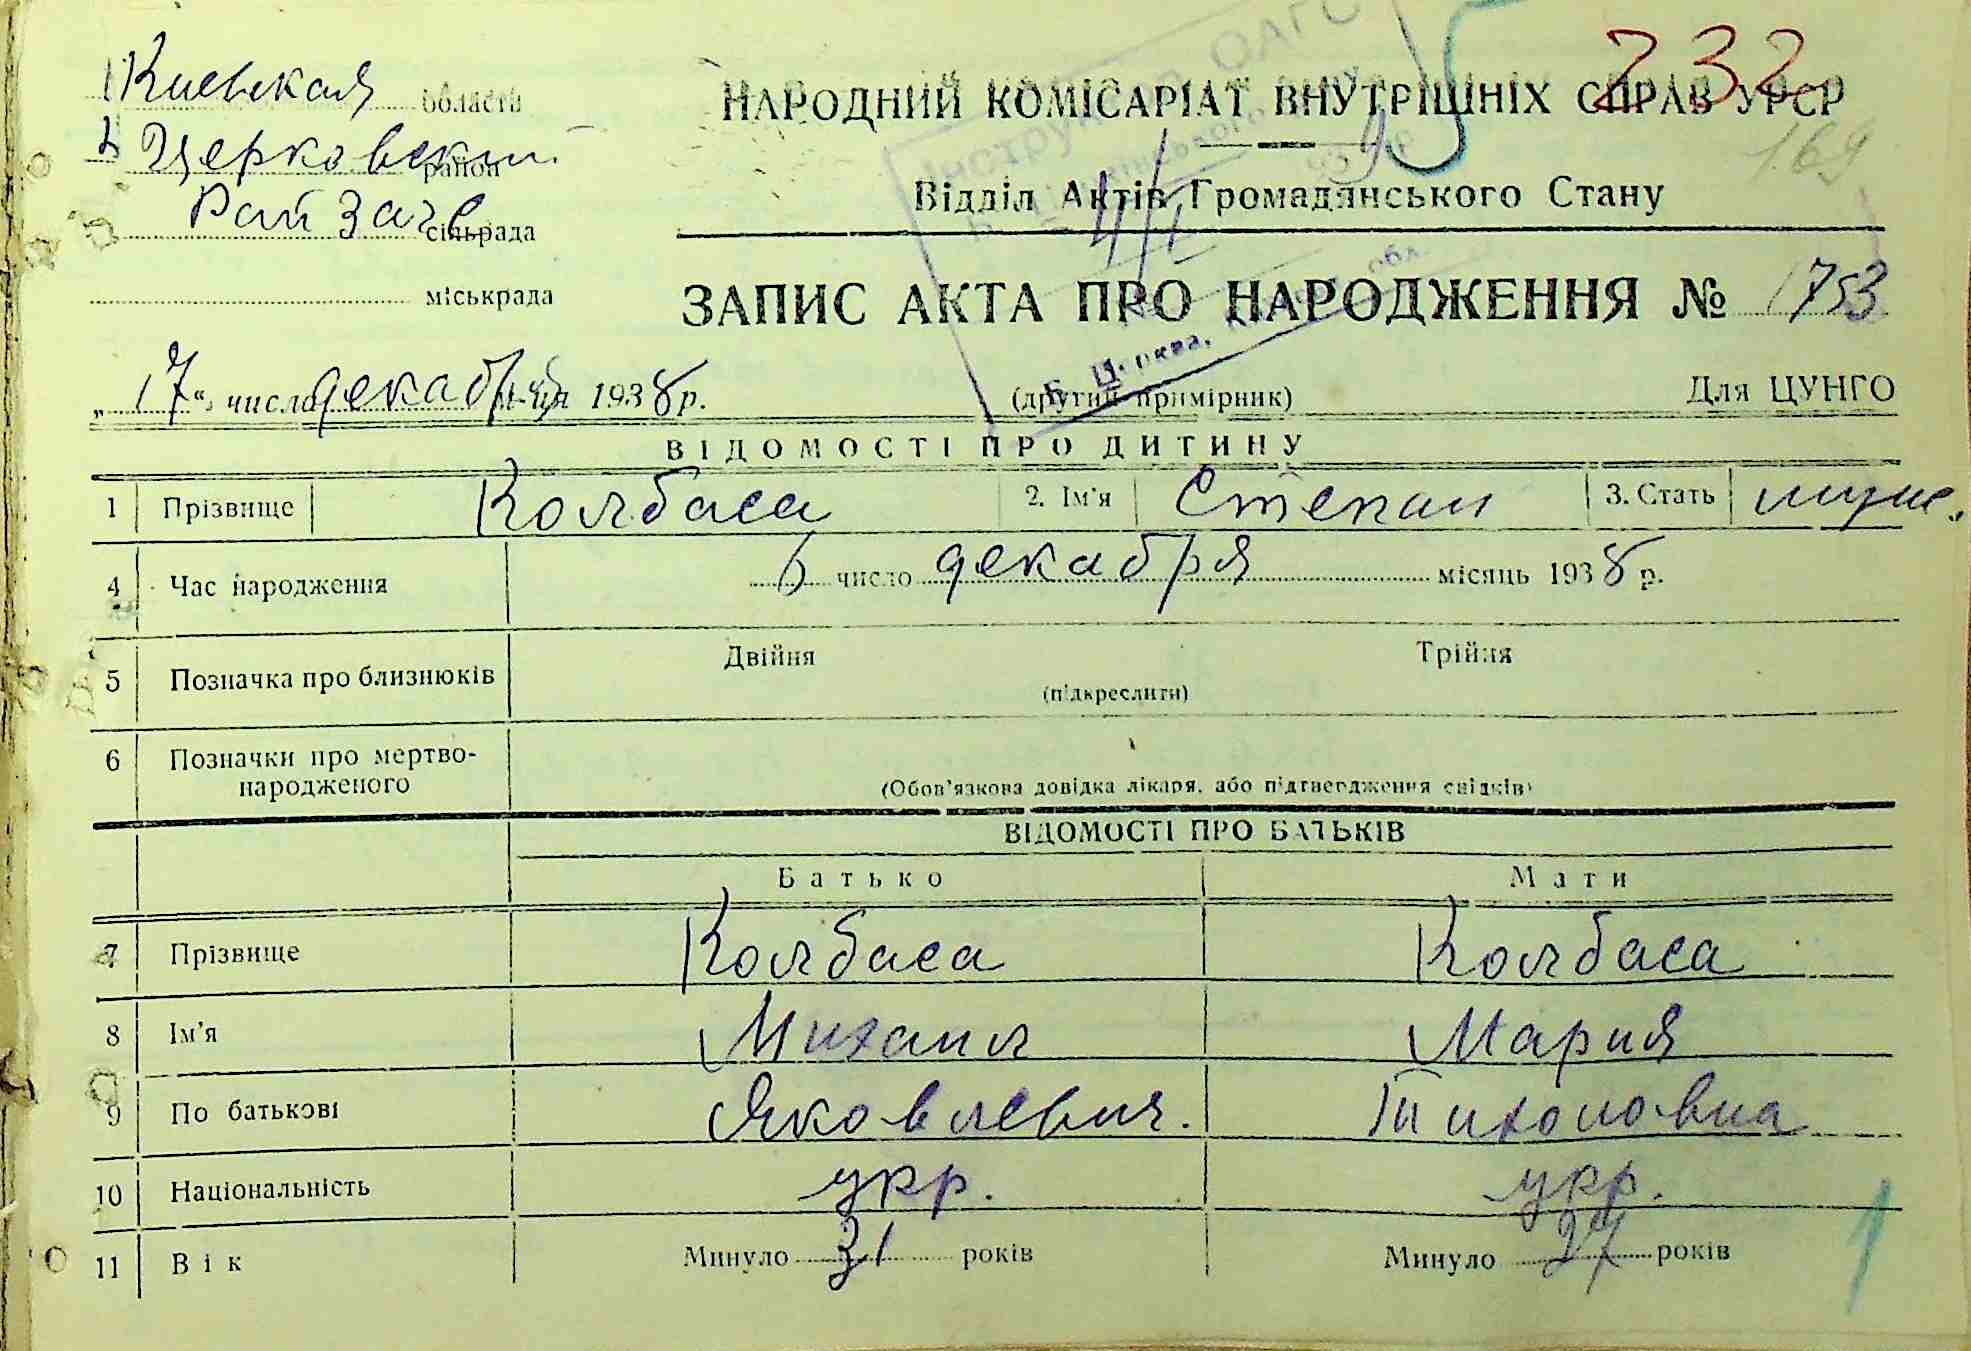 Киевская область
Б Церковский район
Рай Загс сільрада
міськрада
НАРОДНИЙ КОМІСАРІАТ ВНУТРІШНІХ СПРАВ УРСР
232
169
Відділ Актів Громадянського Стану
ЗАПИС АКТА ПРО НАРОДЖЕННЯ № 1753
„17“ число декабря м-ця 1938 р.
(другий примірник)
Для ЦУНГО
ВІДОМОСТІ ПРО ДИТИНУ
1 Прізвище Колбаса 2. Ім'я Степан 3. Стать муж.
4 Час народження 6 число декабря місяць 1938 р.
5 Позначка про близнюків Двійня Трійня
(підкреслити)
6 Позначки про мертво-
народженого
(Обов'язкова довідка лікаря, або підтвердження свідків)
ВІДОМОСТІ ПРО БАТЬКІВ
Батько Мати
7 Прізвище Колбаса Колбаса
8 Ім'я Михаил Мария
9 По батькові Яковлевич. Тихоновна
10 Національність укр. укр.
11 Вік Минуло 31 років Минуло 27 років